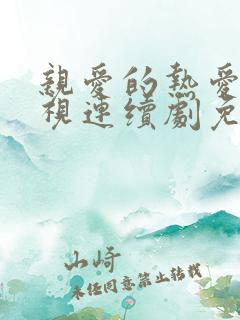 親愛的熱愛
視連續劇免
山崎
未经同意禁止转载